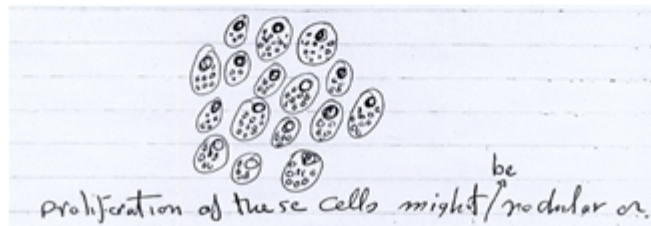 be
proliferation of these cells might/nodular or